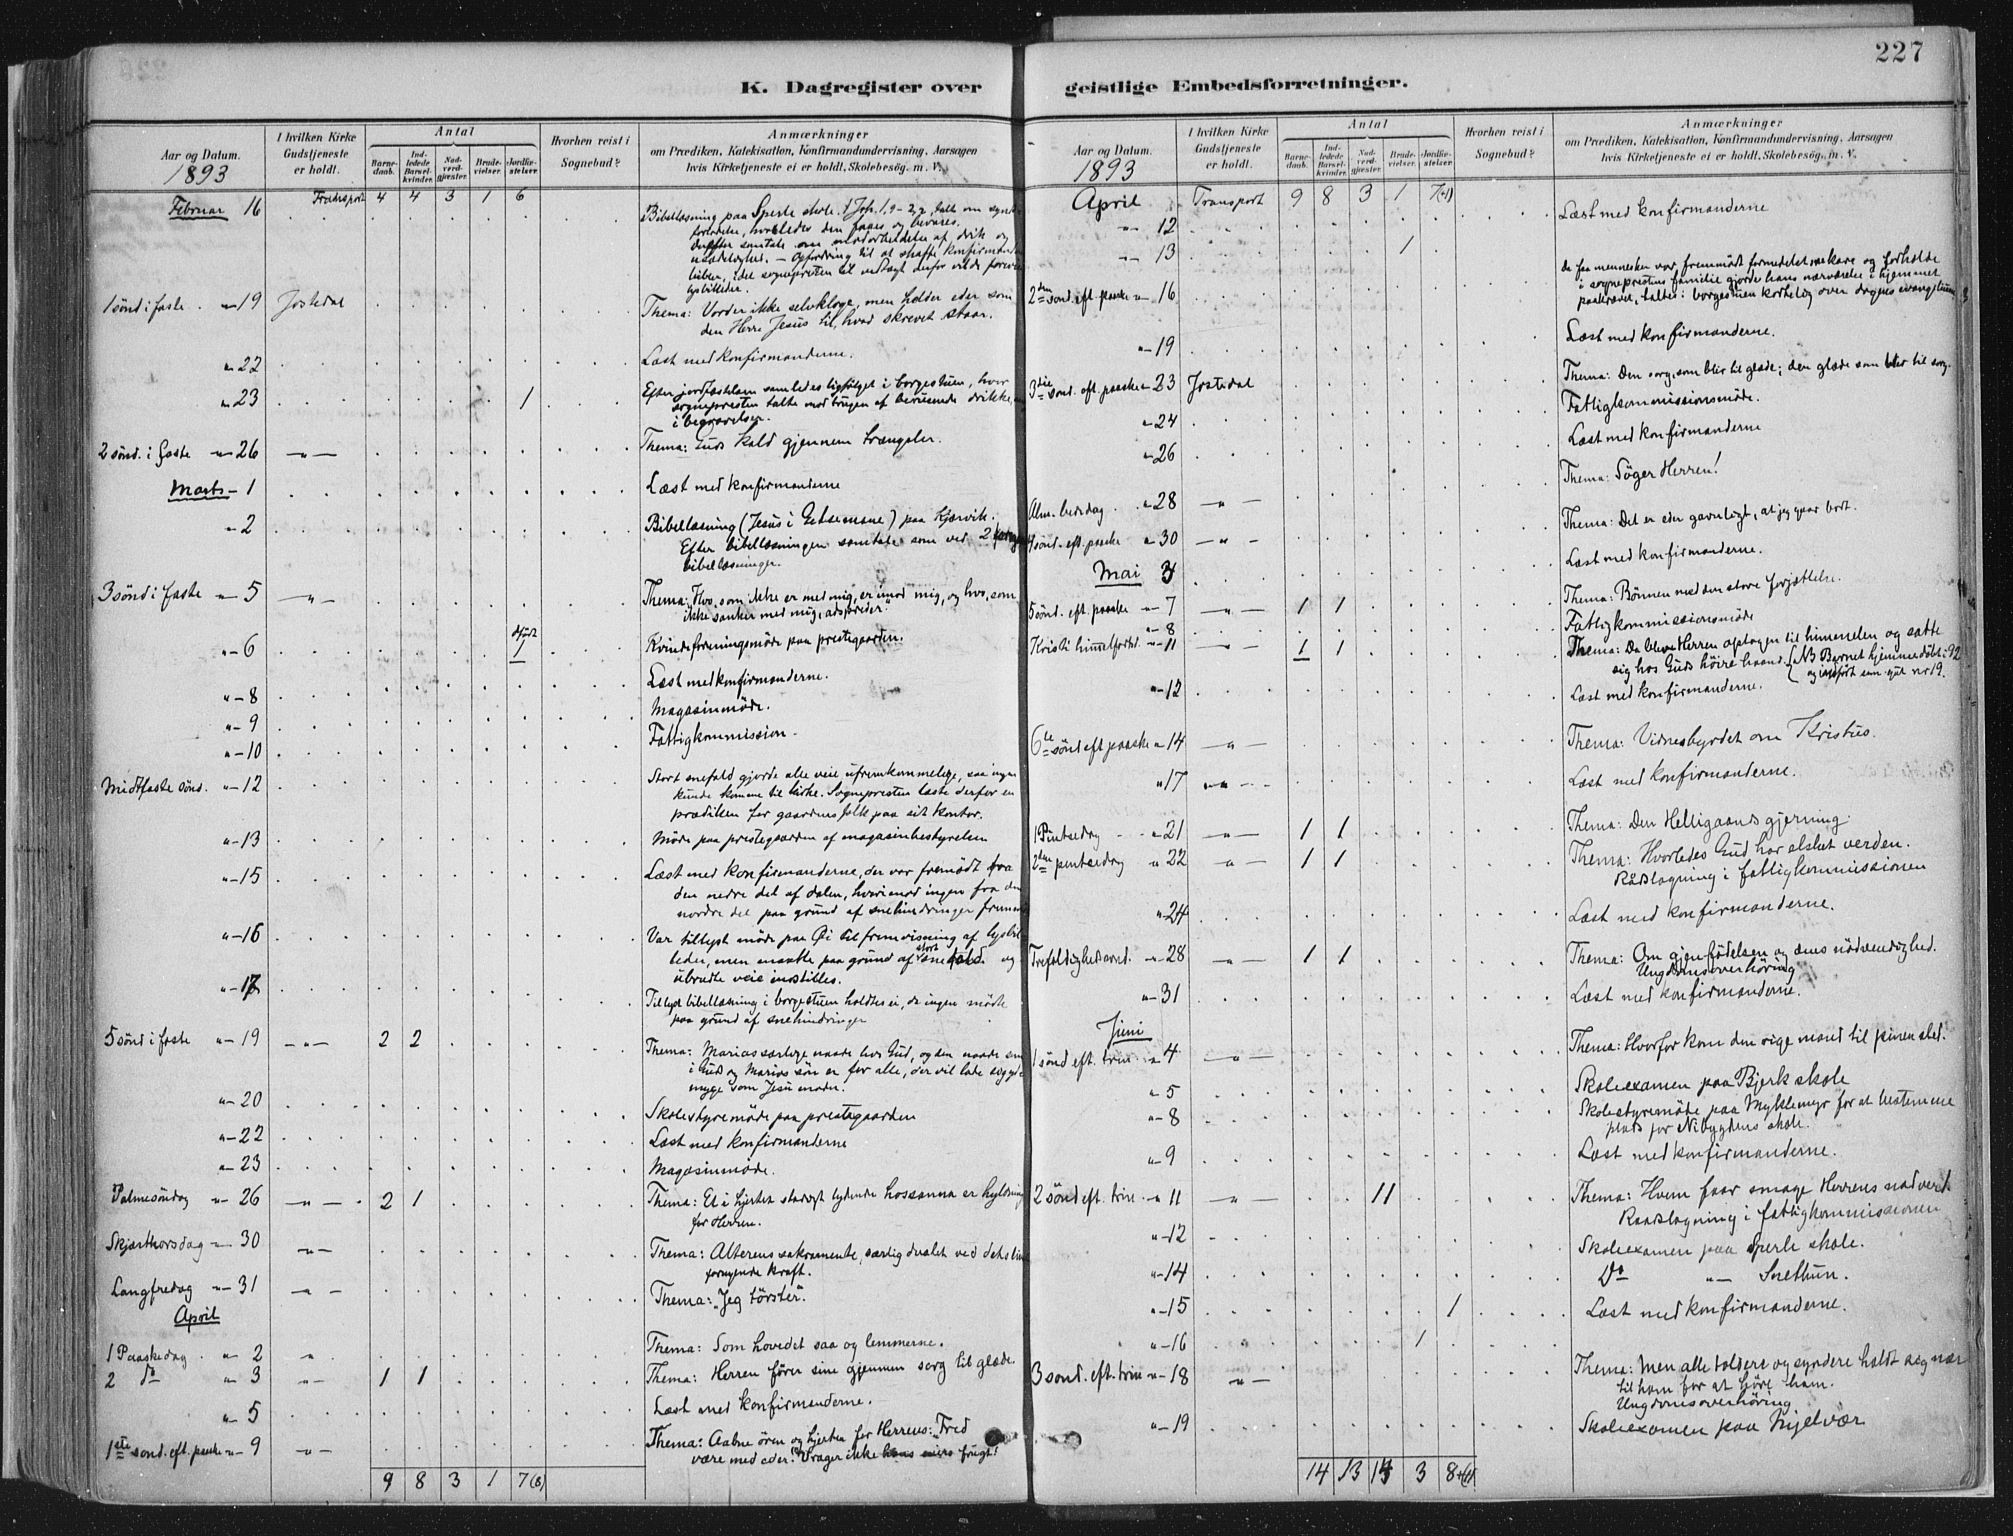 227
K. Dagregister over
Aar og Datum.
1893
I hvilken Kirke Gudstjeneste er holdt.
Antal
Barnedaab.
Indledede Barselkvinder.
Nadverdgjæster.
Brudevielser.
Jordfæstelser.
Hvorhen reist i Sognebud?
Anmærkninger
om Prædiken, Katekisation, Konfirmandundervisning, Aarsagen
hvis Kirketjeneste ei er holdt, Skolebesög, m. V.
Transport 4 4 3 1 6
Februar 16 Bibellæsning paa Sperle skole. 1 Joh. 1,9-2,2, talt om synds
forladelse, hvorledes den faaes og bevares.
Derefter samtale om modarbeidelse af drik og
usædelighed. – Opfordring til at skaffe konfirmander
bibler, idet sognepresten
lysbilleder.
1 sönd i faste "-19 Jostedal Thema: Vorder ikke selvkloge, men holder eder som
den Herre Jesus til, hvad skrevet staar.
"-22 Læst med konfirmanderne.
"-23 1 Efter jordfæstelsen samledes ligfølget i borgestuen, hvor
sognepresten talte mod brugen af berusende drikke
i begravelser.
2 sönd. i Faste "-26 -"- Thema: Guds kald gjennem trængsler.
Marts - 1 Læst med konfirmanderne
"-2 Bibellæsning (Jesus i Getsemane) paa Kjærvik.
Efter bibellæsningen samtale som ved 2
bibellæsninger.
3 sönd i faste "-5 -"- Thema: "Hvo, som ikke er med mig, er imod mig, og hvo, som
ikke sanker med mig, adspreder"
"-6 1 Kvindeforeningsmöde paa prestegaarden.
"-8 Læst med konfirmanderne.
"-9 Magasinmöde.
"-10 Fattigkommission.
Midtfaste sönd. "-12 Stort snefald gjorde alle veie ufremkommelige, saa ingen
kunde komme til kirke. Sognepresten læste derfor en
prædiken for gaardens folk paa sit kontor.
"-13 Möde paa prestegaarden af magasinbestyrelsen
"-15 Læst med konfirmanderne, der var fremödt fra
den nedre del af dalen, hvorimod ingen fra den
nordre del paa grund af snehindringer
"-16 Var tillyst möde paa Öi til fremvisning af lysbil
leder, men maatte paa grund af stort snefald og
ubrudte veie indstilles.
"-17 Tillyst bibellæsning i borgestuen holdtes ei, da ingen mödte
paa grund af snehindringer
5 sönd i faste "-19 -"- 2 2 Thema: Marias særlige naade hos Gud, og den naade som
i Guds og Marias sön er for alle, der vil lade sig yd-
myge som Jesu moder.
"-20 Skolestyremöde paa prestegaarden
"-22 Læst med konfirmanderne
"-23 Magasinmöde.
Palmesöndag "-26 -"- 2 1 Thema: Et i hjertet stadigt lydende hossanna er hyldning
for Herren.
Skjærthorsdag "-30 -"- Thema: Alterens sakramente, særlig dvalet ved dets
fornyende kraft.
Langfredag "-31 -"- Thema: "Jeg törster".
April
1 Paaskedag "-2 " Thema: Som hovedet saa og lemmerne.
2 do "-3 -"- 1 1 Thema: Herren förer sine gjennem sorg til glæde.
"-5 Læst med konfirmanderne.
1ste sönd. eft. paaske "-9 -"- Thema: Aabne ören og hjerter for Herrens: "Fred
være med eder!" Vrager ikke hans seiers frugt!
9 8 3 1 7(8)
geistlige Embedsforretninger.
Aar og Datum.
1893
I hvilken Kirke Gudstjeneste er holdt.
Antal
Barnedaab.
Indledede Barselkvinder.
Nadverdgjæster.
Brudevielser.
Jordfæstelser.
Hvorhen reist i Sognebud?
Anmærkninger
om Prædiken, Katekisation, Konfirmandundervisning, Aarsagen
hvis Kirketjeneste ei er holdt, Skolebesög, m. V.
April Transport 9 8 3 1 7(+1)
"-12 Læst med konfirmanderne
"-13 1
2den sönd. eft. paaske "-16 da faa mennesker var fremmödt formedelst uveir og forholde
i sogneprestens familie gjorde hans nærværelse i hjemmet
paakrævet, taltes i borgestuen kortelig over dagens evangelium
"-19 Læst med konfirmanderne.
3die sönd. eft. paaske "-23 Jostedal Thema: Den sorg, som blir til glæde; den glæde som blir til sorg.
"-24 Fattigkommissionsmöde.
"-26 Læst med konfirmanderne
Alm. bededag "-28 -"- Thema: Söger Herren!
4 sönd. eft. paaske "-30 -"- Thema: Det er eder gavnligt, at jeg gaar bort.
Mai 3 Læst med konfirmanderne.
5 sönd. eft. paaske "-7 -"- 1 1 Thema: Bönnen med den store forjættelse.
"-8 Fattigkommissionsmöde
Kristi himmelfartsd. "-11 -"- 1 1 Thema: Da blev Herren optagen til himmelen og satte
sig hos Guds höire haand. (NB Barnet hjemmedöbt i 92
og indfört som sjul nr 19.
"-12 Læst med konfirmanderne.
6te sönd eft paaske "14 -"- Thema: Vidnesbyrdet om Kristus.
"17 Læst med konfirmanderne.
1 Pintsedag "-21 -"- 1 1 Thema: Den Helligaands gjerning.
2den pintsedag "22 -"- 1 1 Thema: Hvorledes Gud har elsket verden.
Raadslagning i fattigkommissionen
"-24 Læst med konfirmanderne.
Trefoldighedssönd. "-28 -"- 1 1 Thema: Om gjenfödelsen og dens nödvendighed.
Ungdomsoverhöring
"-31 Læst med konfirmanderne.
Juni
1 sönd eft. trin "-4 -"- Thema: Hvorfor kom den rige mand til pinens sted.
"-5 Skoleexamen paa Bjerk skole
"-8 Skolestyremöte paa Myklemyr for at bestemme
plads for Nibygdens skole.
"-9 Læst med konfirmanderne.
2 sönd eft. trin. "11 -"- 11 Thema: Hvem faar smage Herrens nadverd.
Raadslagning i fattigkommissionen
"-12 Skoleexamen paa Sperle skole.
"-14 Do "- Snethun.
"-15 1 Læst med konfirmanderne.
"-16 1
3 sönd. eft. trin "-18 -"- Thema: Men alle toldere og syndere holdt sig nær
til ham for at höre ham.
Ungdomsoverhöring
"-19 Skoleexamen paa Mjelvær
14 13 14 3 8+(1)